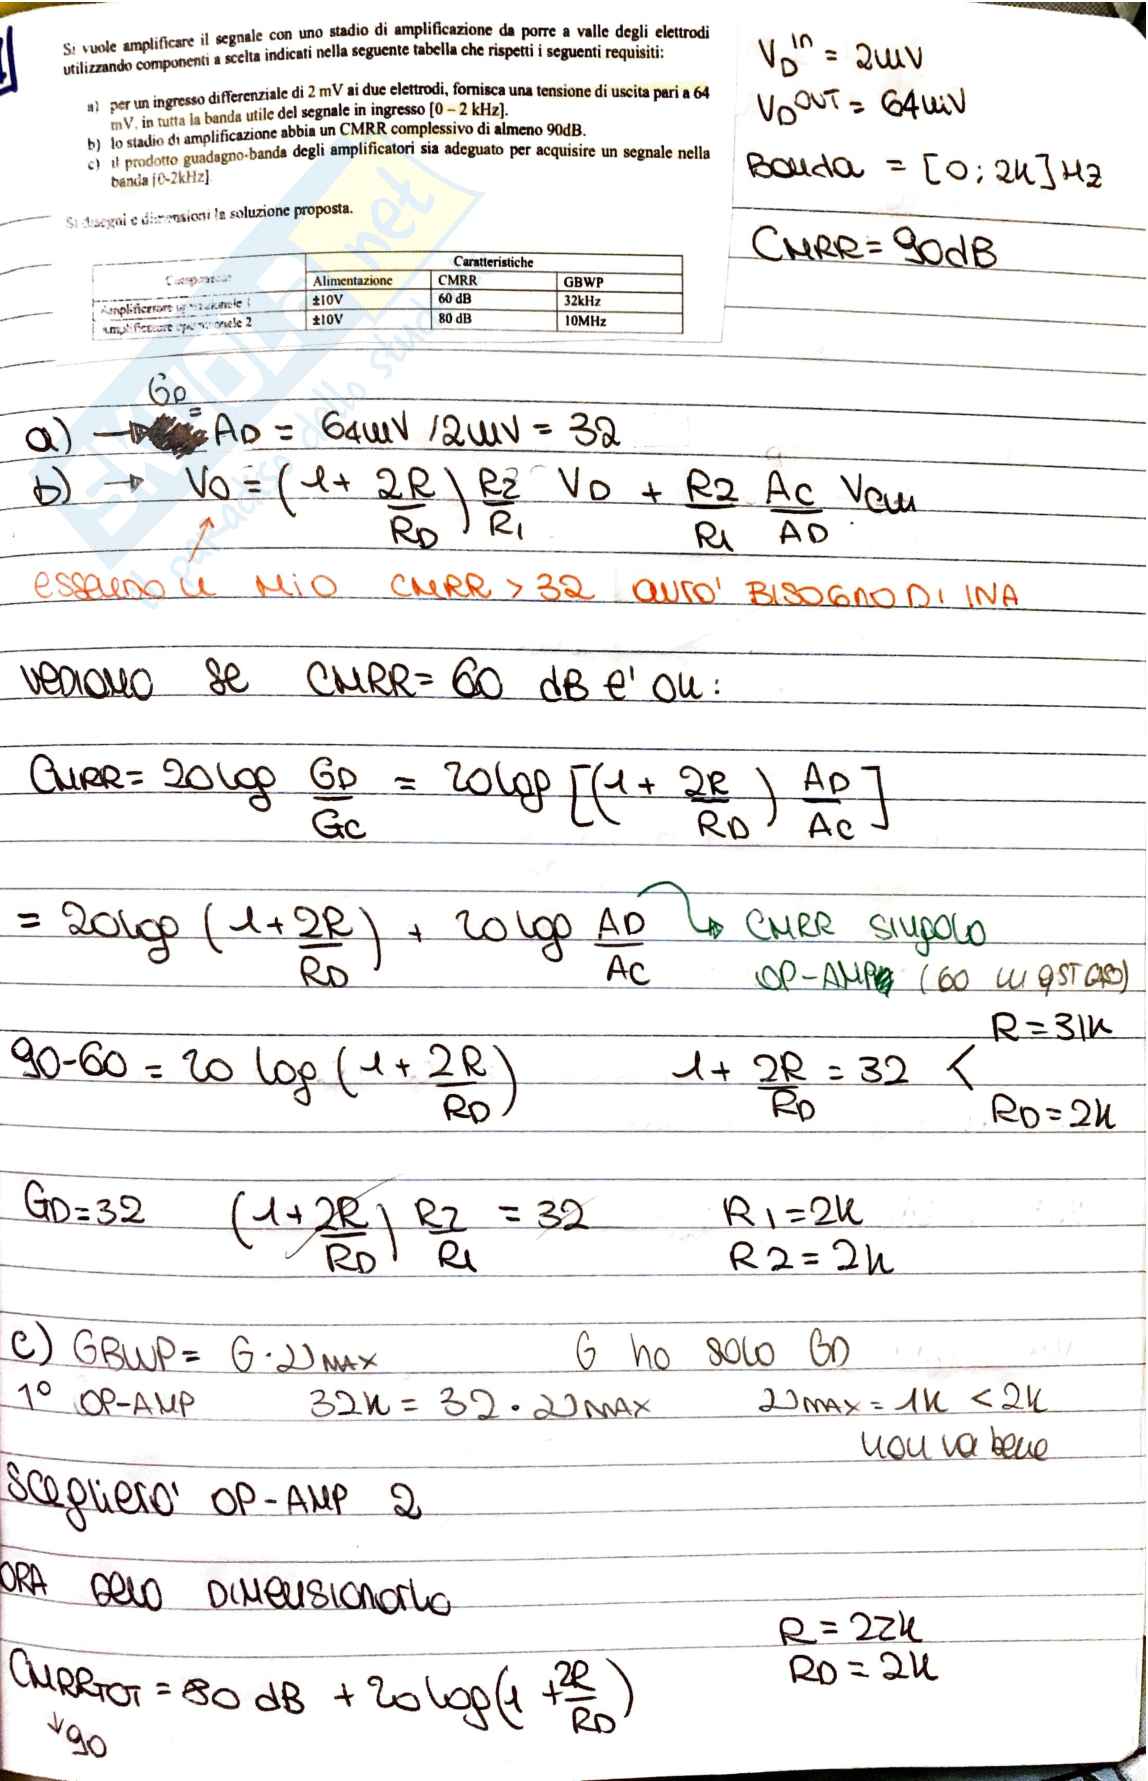 Si vuole amplificare il segnale con uno stadio di amplificazione da porre a valle degli elettrodi
utilizzando componenti a scelta indicati nella seguente tabella che rispetti i seguenti requisiti:
a) per un ingresso differenziale di 2 mV ai due elettrodi, fornisca una tensione di uscita pari a 64
mV, in tutta la banda utile del segnale in ingresso [0 – 2 kHz].
b) lo stadio di amplificazione abbia un CMRR complessivo di almeno 90dB.
c) il prodotto guadagno-banda degli amplificatori sia adeguato per acquisire un segnale nella
banda [0-2kHz]
Si disegni e dimensioni la soluzione proposta.
VD^in = 2mV
VD^OUT = 64mV
Banda = [0; 2K] Hz
CMRR = 90dB
Componente Caratteristiche
Alimentazione CMRR GBWP
Amplificatore operazionale 1 ±10V 60 dB 32kHz
Amplificatore operazionale 2 ±10V 80 dB 10MHz
a) → GD = AD = 64mV / 2mV = 32
b) → VO = (1 + 2R/RD) R2/R1 VD + R2/R1 AC/AD Vcm
essendo il mio CMRR > 32 avrò BISOGNO DI INA
vediamo se CMRR = 60 dB e' ok:
CMRR = 20 log GD/GC = 20 log [(1 + 2R/RD) AD/AC]
= 20 log (1 + 2R/RD) + 20 log AD/AC → CMRR singolo
OP-AMP (60 in qst caso)
90-60 = 20 log (1 + 2R/RD) 1 + 2R/RD = 32 < R = 31K
RD = 2K
GD = 32 (1 + 2R/RD) R2/R1 = 32 R1 = 2K
R2 = 2K
c) GBWP = G · νMAX G ho solo GD
1° OP-AMP 32K = 32 · νMAX νMAX = 1K < 2K
non va bene
scegliero' OP-AMP 2
ORA devo DIMensionarlo
CMRRTOT = 80 dB + 20 log (1 + 2R/RD) R = 22K
RD = 2K
↓90